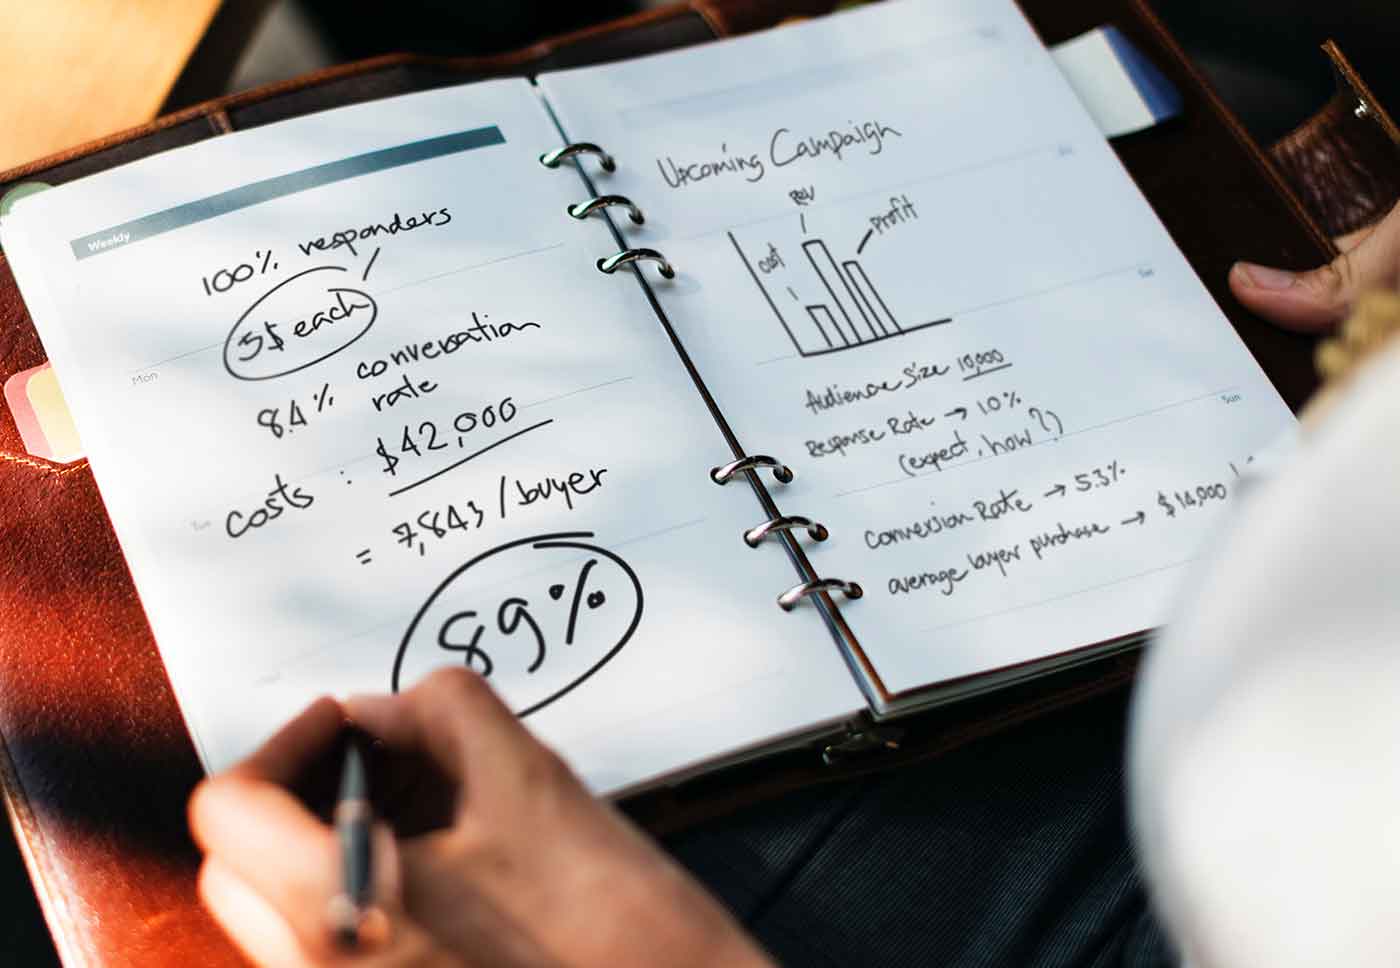 Weekly
100% responders
5$ each
8.4% conversation
rate
costs : $42,000
= 7,843/buyer
89%
Mon
Tue
Upcoming Campaign
Rev
cost
profit
Audience Size 10,000
Response Rate → 10%
(expect, how?)
Conversion Rate → 5.3%
average buyer purchase → $14,000
Sat
Sun